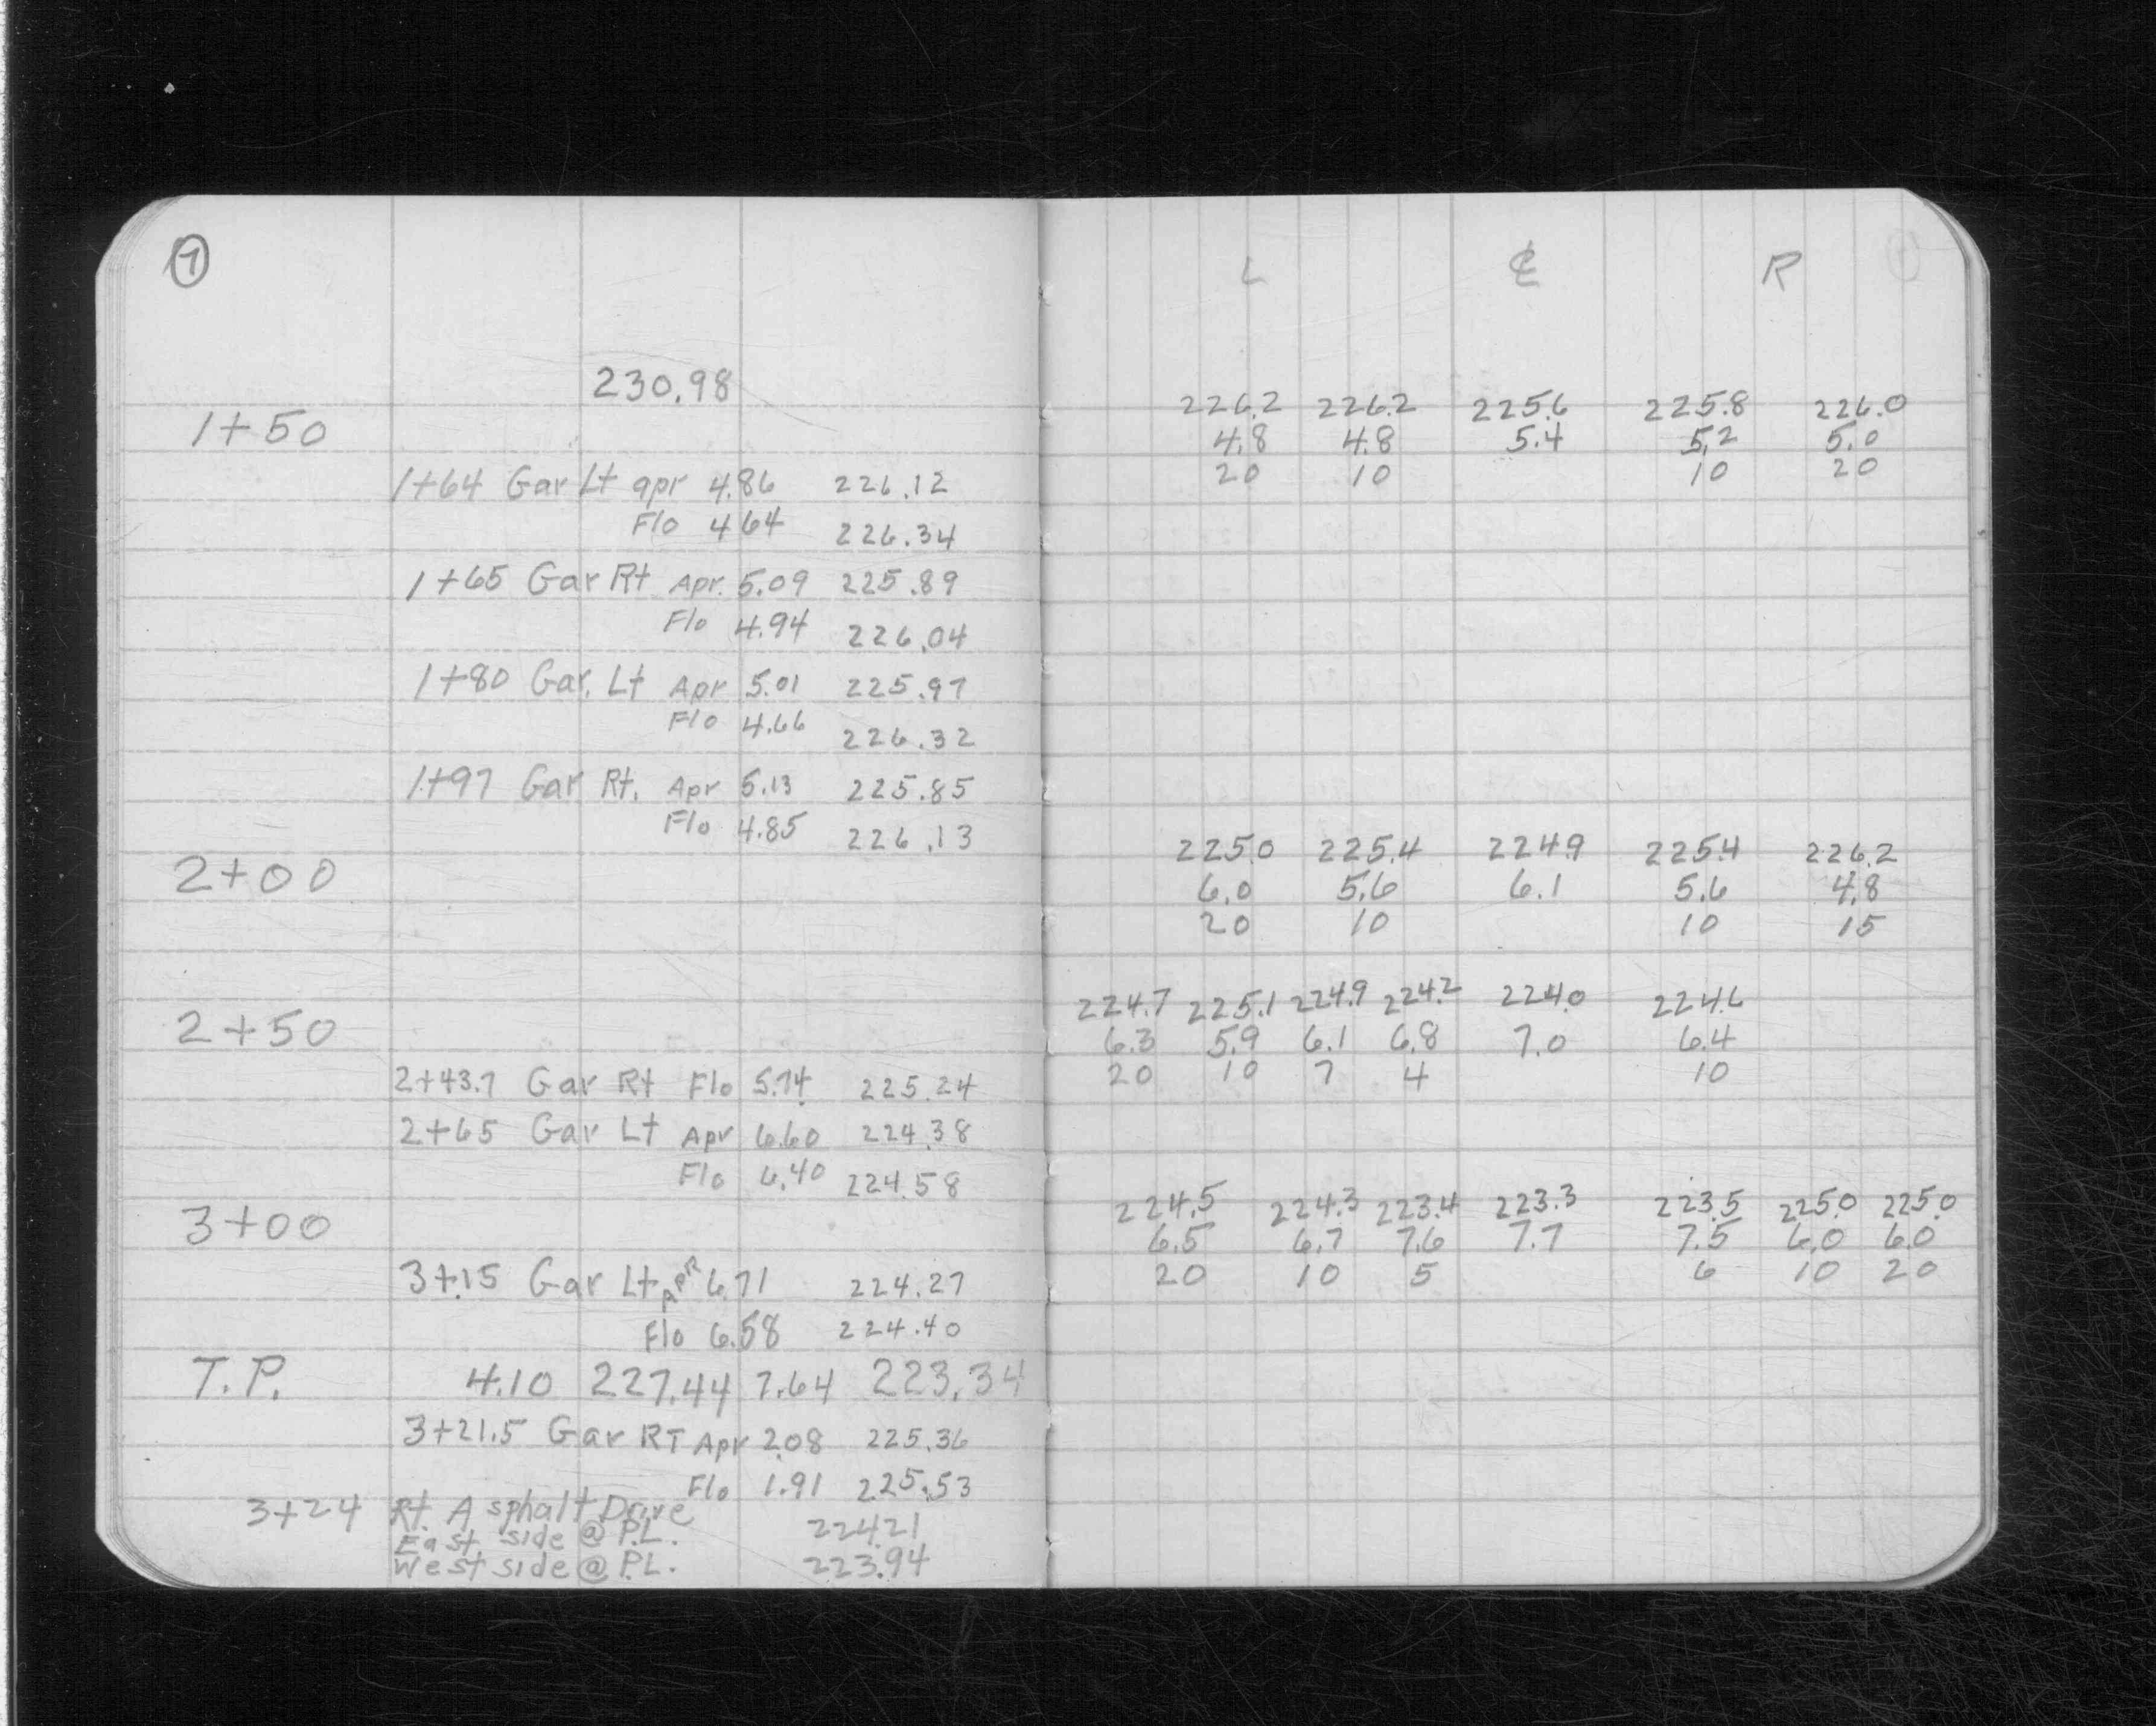 7
230.98
1+50
1+64 Gar Lt apr 4.86 226.12
Flo 4.64 226.34
1+65 Gar Rt Apr. 5.09 225.89
Flo 4.94 226.04
1+80 Gar. Lt Apr 5.01 225.97
Flo 4.66 226.32
1+97 Gar Rt. Apr 5.13 225.85
Flo 4.85 226.13
2+00
2+50
2+43.7 Gar Rt Flo 5.74 225.24
2+65 Gar Lt Apr 6.60 224.38
Flo 6.40 224.58
3+00
3+15 Gar Lt APR 6.71 224.27
Flo 6.58 224.40
T.P. 4.10 227.44 7.64 223.34
3+21.5 Gar RT Apr 2.08 225.36
Flo 1.91 225.53
3+24 Rt. Asphalt Drive
East side @ P.L. 224.21
West side @ P.L. 223.94
L ℄ R
226.2 226.2 225.6 225.8 226.0
4.8 4.8 5.4 5.2 5.0
20 10 10 20
225.0 225.4 224.9 225.4 226.2
6.0 5.6 6.1 5.6 4.8
20 10 10 15
224.7 225.1 224.9 224.2 224.0 224.6
6.3 5.9 6.1 6.8 7.0 6.4
20 10 7 4 10
224.5 224.3 223.4 223.3 223.5 225.0 225.0
6.5 6.7 7.6 7.7 7.5 6.0 6.0
20 10 5 6 10 20